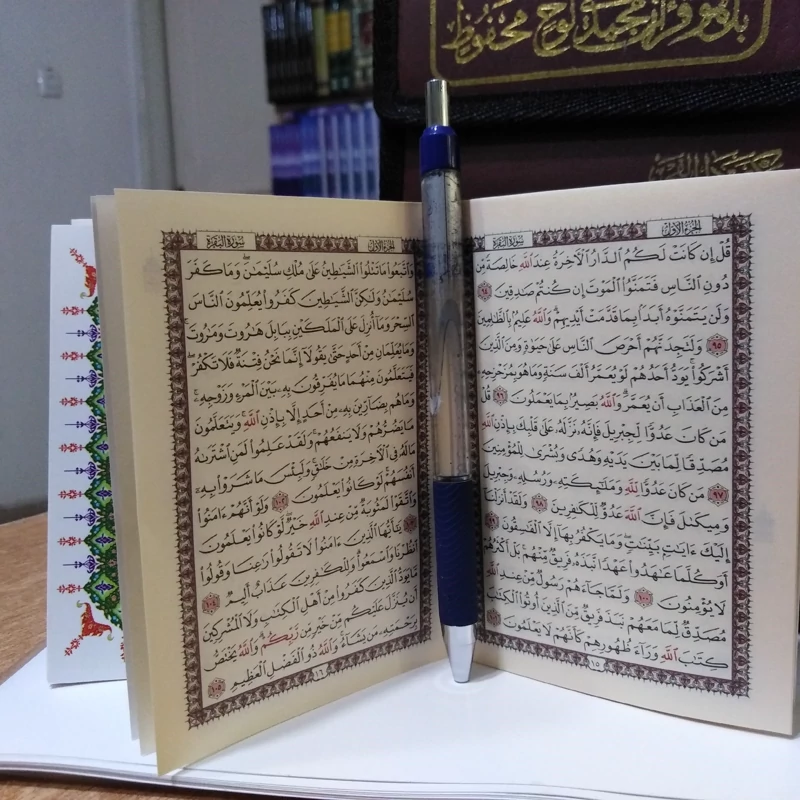 بل هو قرآن مجيد في لوح محفوظ
الجزء الأول
سورة البقرة
قُلْ إِن كَانَتْ لَكُمُ الدَّارُ الْآخِرَةُ عِندَ اللَّهِ خَالِصَةً مِّن
دُونِ النَّاسِ فَتَمَنَّوُا الْمَوْتَ إِن كُنتُمْ صَادِقِينَ ٩٤
وَلَن يَتَمَنَّوْهُ أَبَدًا بِمَا قَدَّمَتْ أَيْدِيهِمْ وَاللَّهُ عَلِيمٌ بِالظَّالِمِينَ
٩٥ وَلَتَجِدَنَّهُمْ أَحْرَصَ النَّاسِ عَلَىٰ حَيَوٰةٍ وَمِنَ الَّذِينَ
أَشْرَكُوا يَوَدُّ أَحَدُهُمْ لَوْ يُعَمَّرُ أَلْفَ سَنَةٍ وَمَا هُوَ بِمُزَحْزِحِهِ
مِنَ الْعَذَابِ أَن يُعَمَّرَ وَاللَّهُ بَصِيرٌ بِمَا يَعْمَلُونَ ٩٦ قُلْ
مَن كَانَ عَدُوًّا لِّجِبْرِيلَ فَإِنَّهُ نَزَّلَهُ عَلَىٰ قَلْبِكَ بِإِذْنِ اللَّهِ
مُصَدِّقًا لِّمَا بَيْنَ يَدَيْهِ وَهُدًى وَبُشْرَىٰ لِلْمُؤْمِنِينَ
٩٧ مَن كَانَ عَدُوًّا لِّلَّهِ وَمَلَائِكَتِهِ وَرُسُلِهِ وَجِبْرِيلَ
وَمِيكَالَ فَإِنَّ اللَّهَ عَدُوٌّ لِّلْكَافِرِينَ ٩٨ وَلَقَدْ أَنزَلْنَا
إِلَيْكَ آيَاتٍ بَيِّنَاتٍ وَمَا يَكْفُرُ بِهَا إِلَّا الْفَاسِقُونَ ٩٩
أَوَكُلَّمَا عَاهَدُوا عَهْدًا نَّبَذَهُ فَرِيقٌ مِّنْهُم بَلْ أَكْثَرُهُمْ
لَا يُؤْمِنُونَ ١٠٠ وَلَمَّا جَاءَهُمْ رَسُولٌ مِّنْ عِندِ اللَّهِ
مُصَدِّقٌ لِّمَا مَعَهُمْ نَبَذَ فَرِيقٌ مِّنَ الَّذِينَ أُوتُوا الْكِتَابَ
كِتَابَ اللَّهِ وَرَاءَ ظُهُورِهِمْ كَأَنَّهُمْ لَا يَعْلَمُونَ ١٠١
١٥
الجزء الأول
سورة البقرة
وَاتَّبَعُوا مَا تَتْلُوا الشَّيَاطِينُ عَلَىٰ مُلْكِ سُلَيْمَانَ وَمَا كَفَرَ
سُلَيْمَانُ وَلَٰكِنَّ الشَّيَاطِينَ كَفَرُوا يُعَلِّمُونَ النَّاسَ
السِّحْرَ وَمَا أُنزِلَ عَلَى الْمَلَكَيْنِ بِبَابِلَ هَارُوتَ وَمَارُوتَ
وَمَا يُعَلِّمَانِ مِنْ أَحَدٍ حَتَّىٰ يَقُولَا إِنَّمَا نَحْنُ فِتْنَةٌ فَلَا تَكْفُرْ
فَيَتَعَلَّمُونَ مِنْهُمَا مَا يُفَرِّقُونَ بِهِ بَيْنَ الْمَرْءِ وَزَوْجِهِ
وَمَا هُم بِضَارِّينَ بِهِ مِنْ أَحَدٍ إِلَّا بِإِذْنِ اللَّهِ وَيَتَعَلَّمُونَ
مَا يَضُرُّهُمْ وَلَا يَنفَعُهُمْ وَلَقَدْ عَلِمُوا لَمَنِ اشْتَرَاهُ
مَا لَهُ فِي الْآخِرَةِ مِنْ خَلَاقٍ وَلَبِئْسَ مَا شَرَوْا بِهِ
أَنفُسَهُمْ لَوْ كَانُوا يَعْلَمُونَ ١٠٢ وَلَوْ أَنَّهُمْ آمَنُوا
وَاتَّقَوْا لَمَثُوبَةٌ مِّنْ عِندِ اللَّهِ خَيْرٌ لَّوْ كَانُوا يَعْلَمُونَ
١٠٣ يَا أَيُّهَا الَّذِينَ آمَنُوا لَا تَقُولُوا رَاعِنَا وَقُولُوا
انظُرْنَا وَاسْمَعُوا وَلِلْكَافِرِينَ عَذَابٌ أَلِيمٌ ١٠٤
مَّا يَوَدُّ الَّذِينَ كَفَرُوا مِنْ أَهْلِ الْكِتَابِ وَلَا الْمُشْرِكِينَ
أَن يُنَزَّلَ عَلَيْكُم مِّنْ خَيْرٍ مِّن رَّبِّكُمْ وَاللَّهُ يَخْتَصُّ
بِرَحْمَتِهِ مَن يَشَاءُ وَاللَّهُ ذُو الْفَضْلِ الْعَظِيمِ ١٠٥
١٦